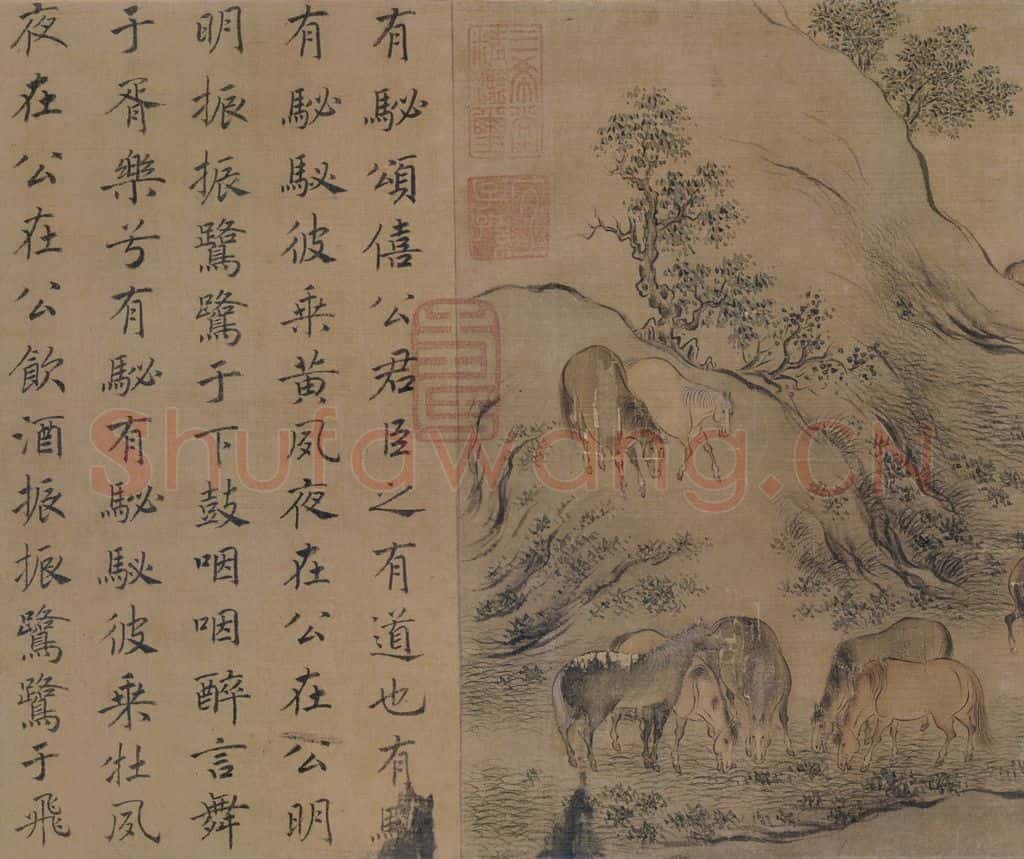 有駜頌僖公君臣之有道也有
有駜駜彼乗黃夙夜在公在公明
明振振鷺鷺于下鼓咽咽醉言舞
于胥樂兮有駜有駜駜彼乗牡夙
夜在公在公飲酒振振鷺鷺于飛
三希堂精鑑璽
宜子孫
Shufawang.CN